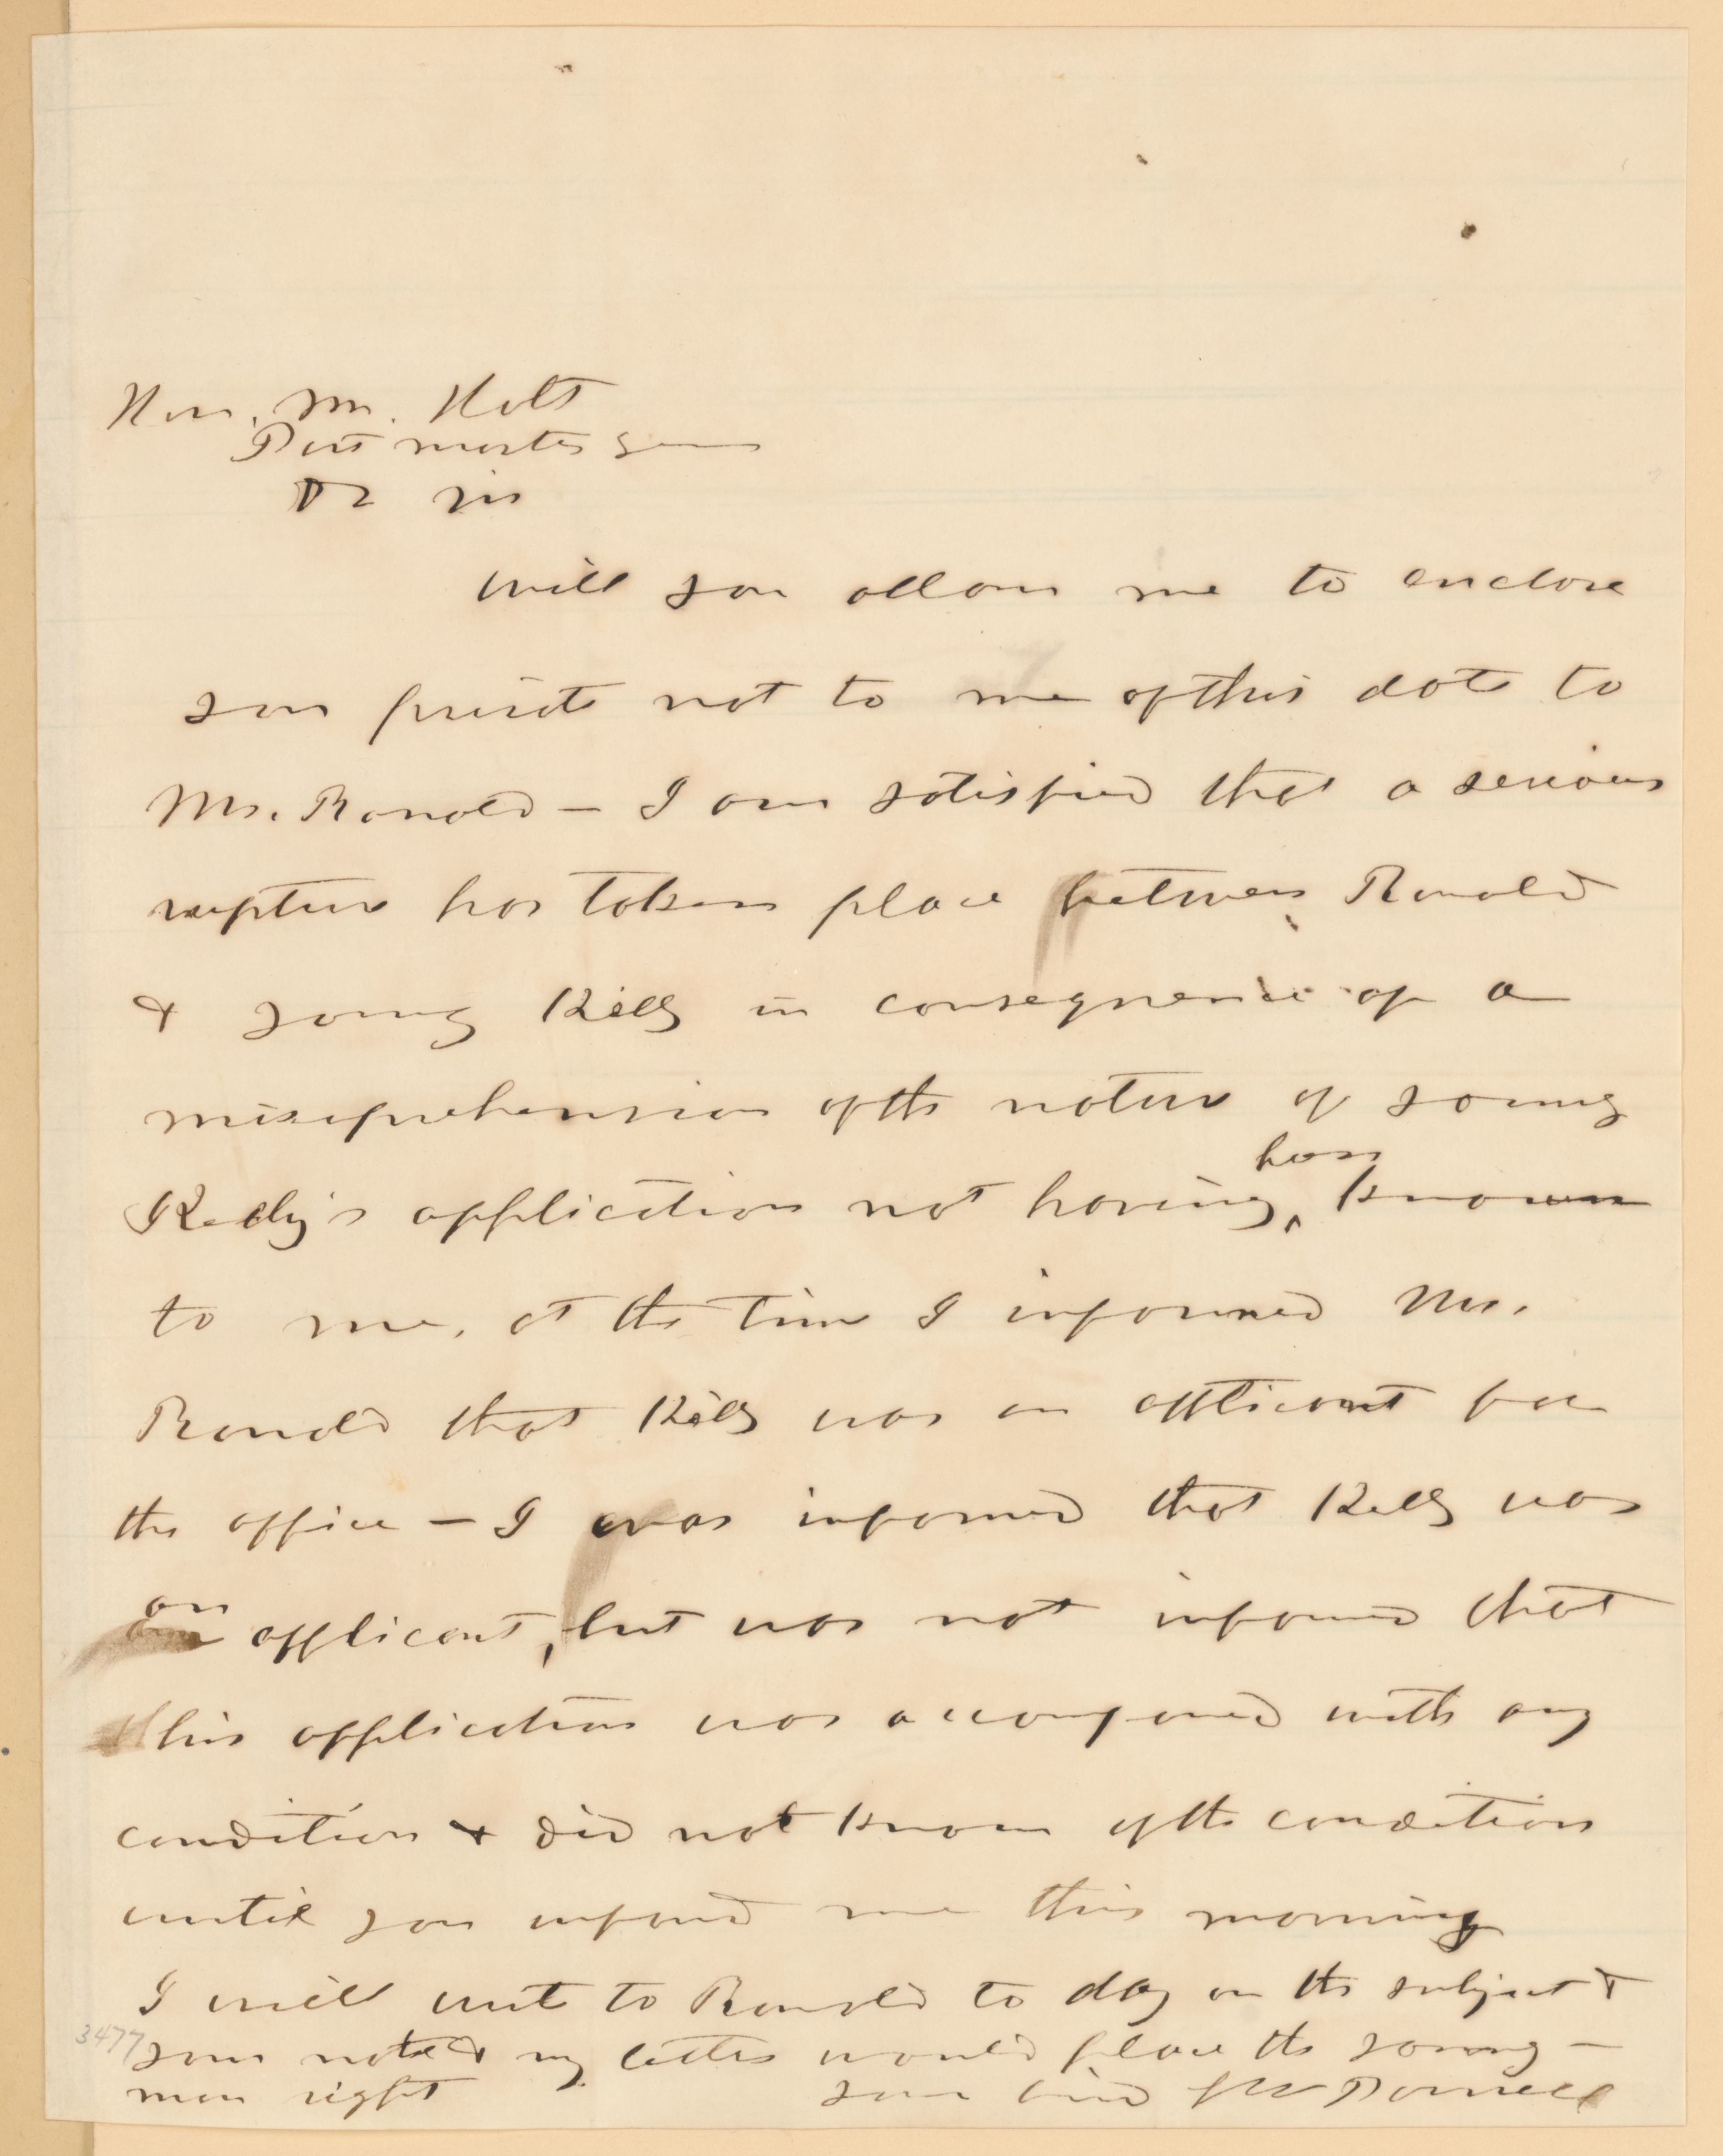 Hon. Mr. Holt
Post master Gen
Dr Sir
Will you allow me to enclose
your private not to me of this date to
Mr. Ronald — I am satisfied that a serious
rupture has taken place between Ronald
& young Kelly in consequence of a
misaprehension of the nature of young
Kelly's application not having, been known
to me, at the time I informed Mr.
Ronald that Kelly was an applicant for
the office — I was informed that Kelly was
an applicant, but was not informed that
his application was accompained with any
condition & did not know of the condition
until you informd me this morning
I will write to Ronald to day on the subject &
your note & my letter would place the young —
man right your
3477